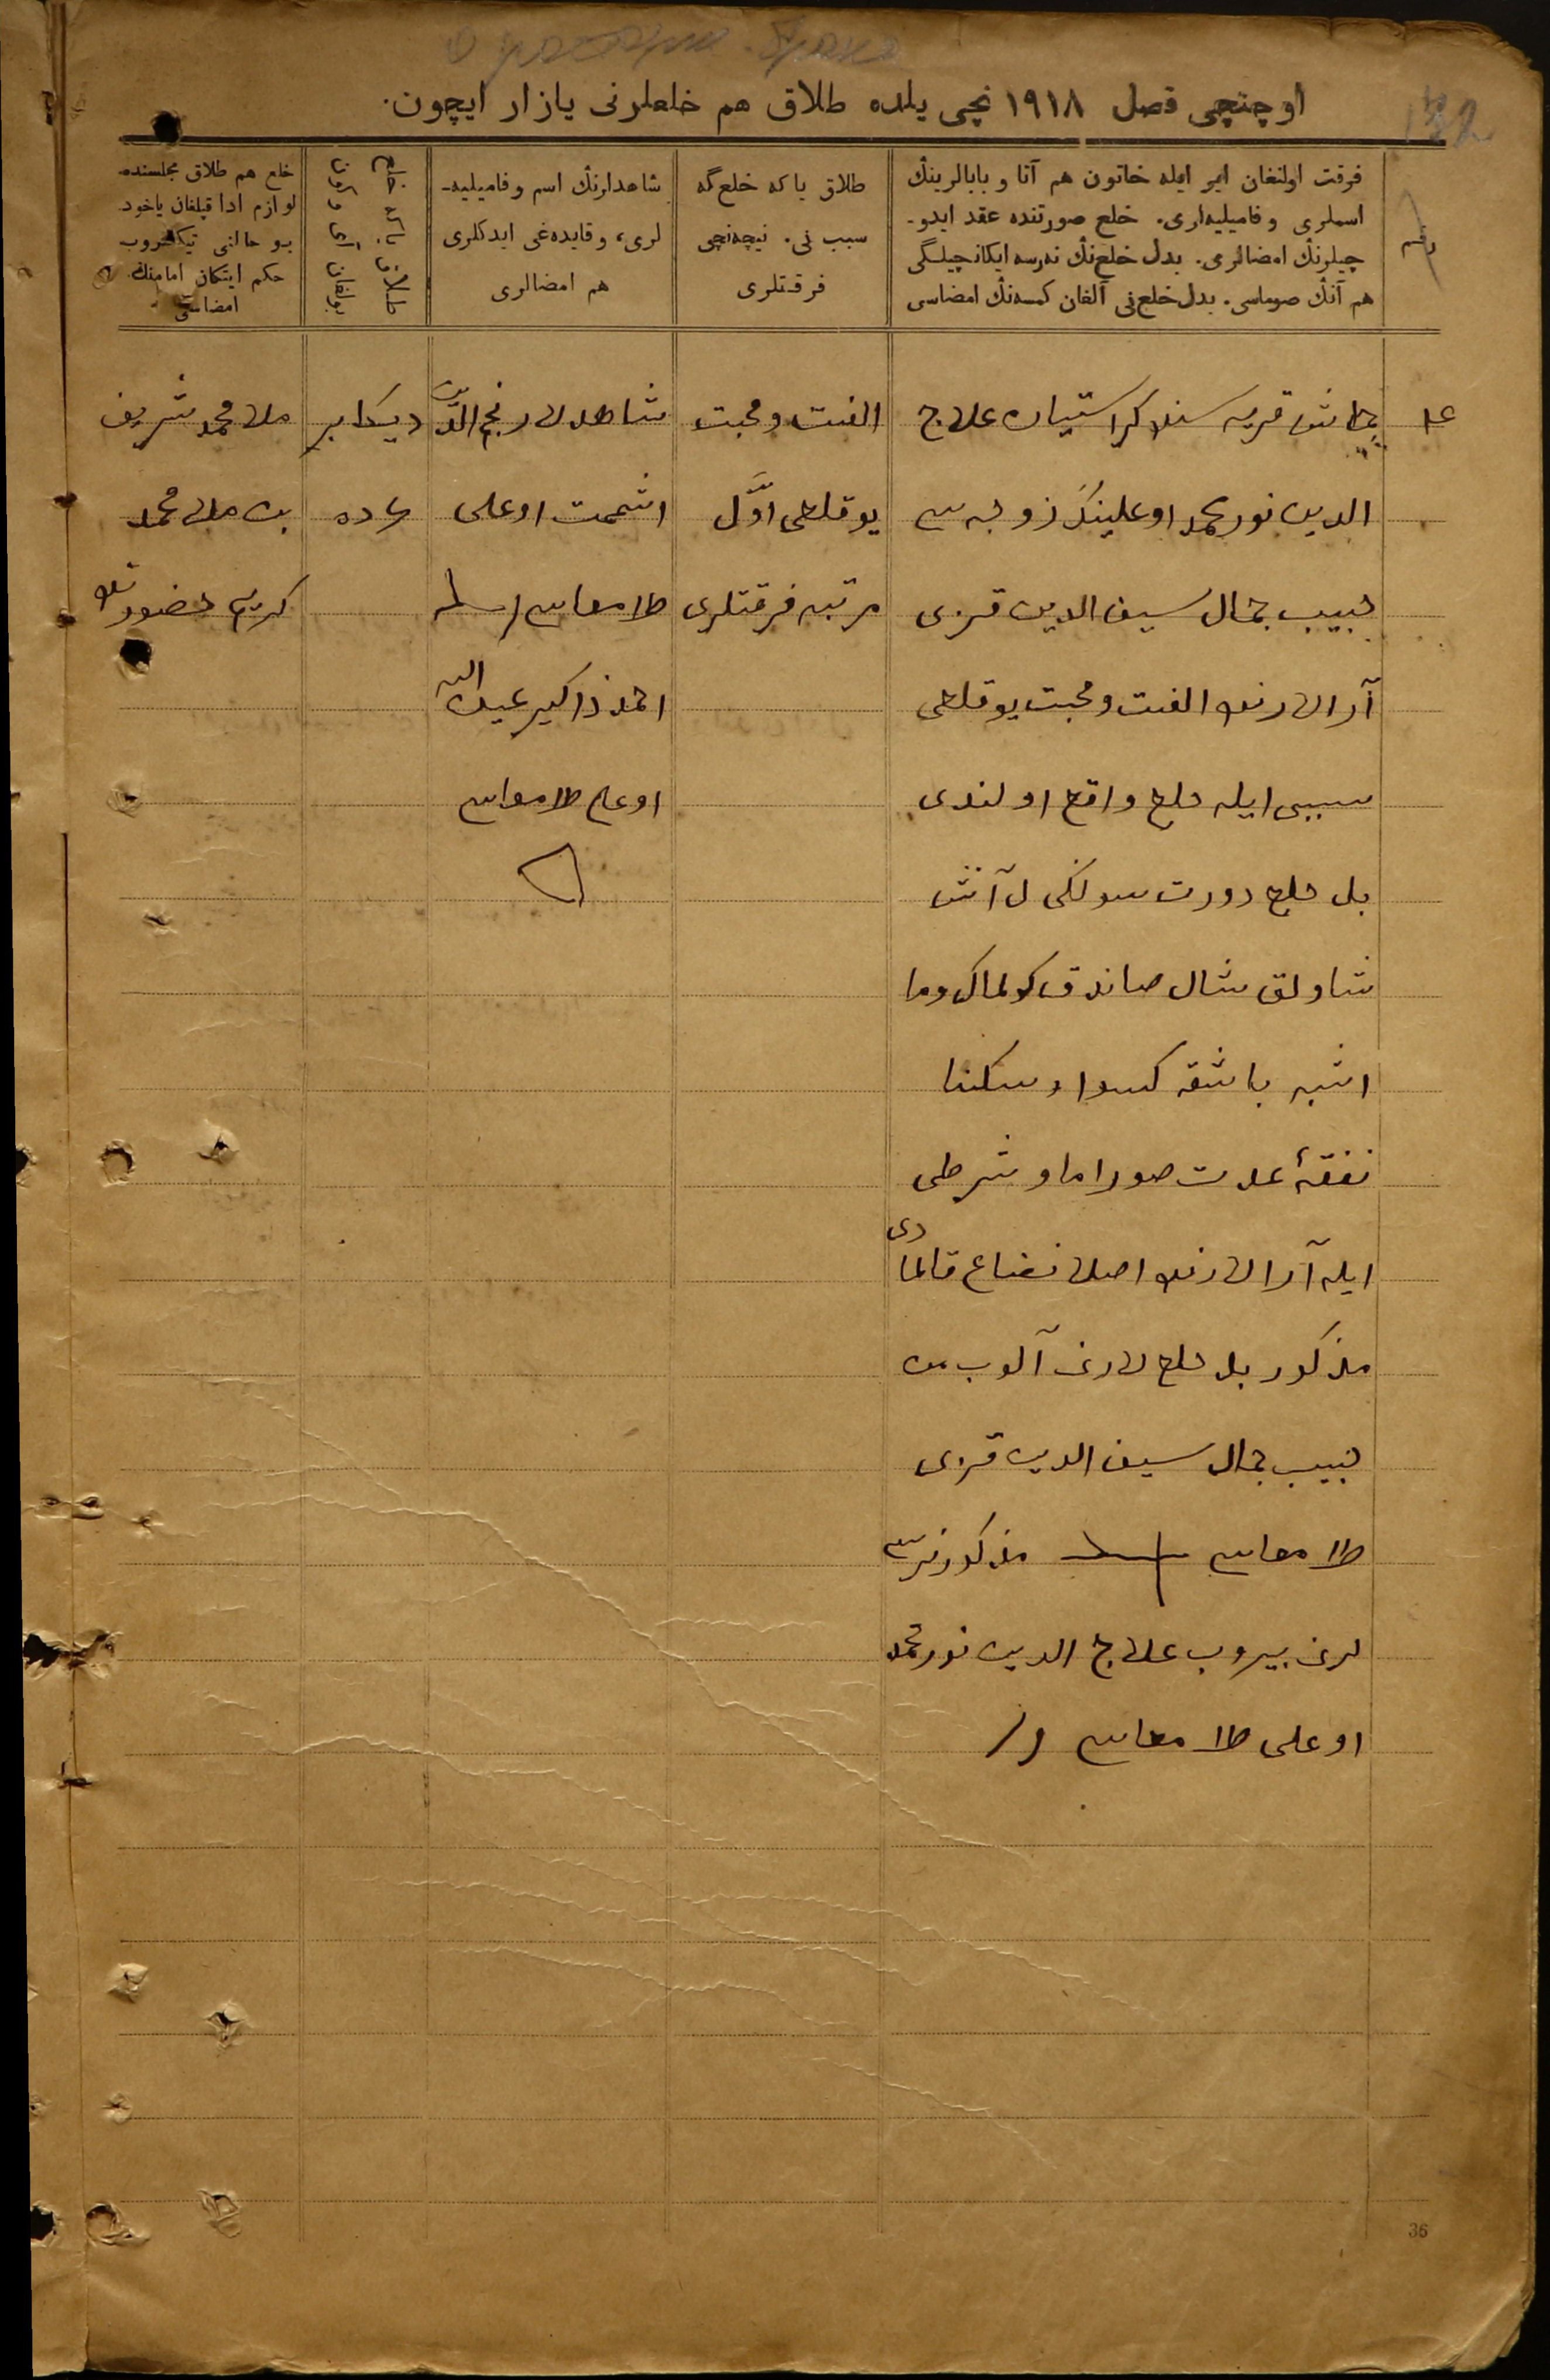 اوچنچی فصل ۱۹۱۸ نچی یلده طلاق هم خلعلرنی یازار ایچون.
رقم
فرقت اولنغان ایر ایله خاتون هم آتا و بابالرینڭ
اسملری و فامیلیه‌لری. خلع صورتنده عقد ایدو-
چیلرنڭ امضالری. بدل خلع‌نڭ نه‌رسه ایکانچیلگی
هم آنڭ صوماسی. بدل خلع‌نی آلغان کمسه‌نڭ امضاسی
طلاق یا که خلع گه
سبب نی. نیچه‌نچی
فرقتلری
شاهدلرنڭ اسم و فامیلیه-
لری، و قایده‌غی ایدکلری
هم امضالری
خلع یا که طلاق
بولغان آی و کون
خلع هم طلاق مجلسنده
لوازم ادا قیلغان یاخود
بو حالنی تیکشروب
حکم ایتکان امامنڭ
امضاسی
۱
قریه سنده کراستیان علاج
الدین نورمحمد اوغلینڭ زوجه سی
حبیب جمال سیف الدین قزی
آرالارنده الفت ومحبت یوقلغی
سببی ایله خلع واقع اولندی
بدل خلع دورت
شاولق شال صاندق کولماک وما
باشقه کسوا وسکنا
نفقهٔ عدت صوراماو شرطی
ایله آرالارنده اصلا نزاع قالمادی
مذکور بدل خلع لارنی آلوب من
حبیب جمال سیف الدین قزی
طامغاسی مذکور نرسه
لرنی بیروب علاج الدین نورمحمد
اوغلی طامغاسی
الفت ومحبت
یوقلغی اوّل
مرتبه فرقتلری
شاهدلار نجم الدّین
اوغلی
طامغاسی
احمد ذاکیر عبدالله
اوغلی طامغاسی
دیکابر
ده
ملا محمد شریف
بن ملا محمد
کریم حضورنده
36